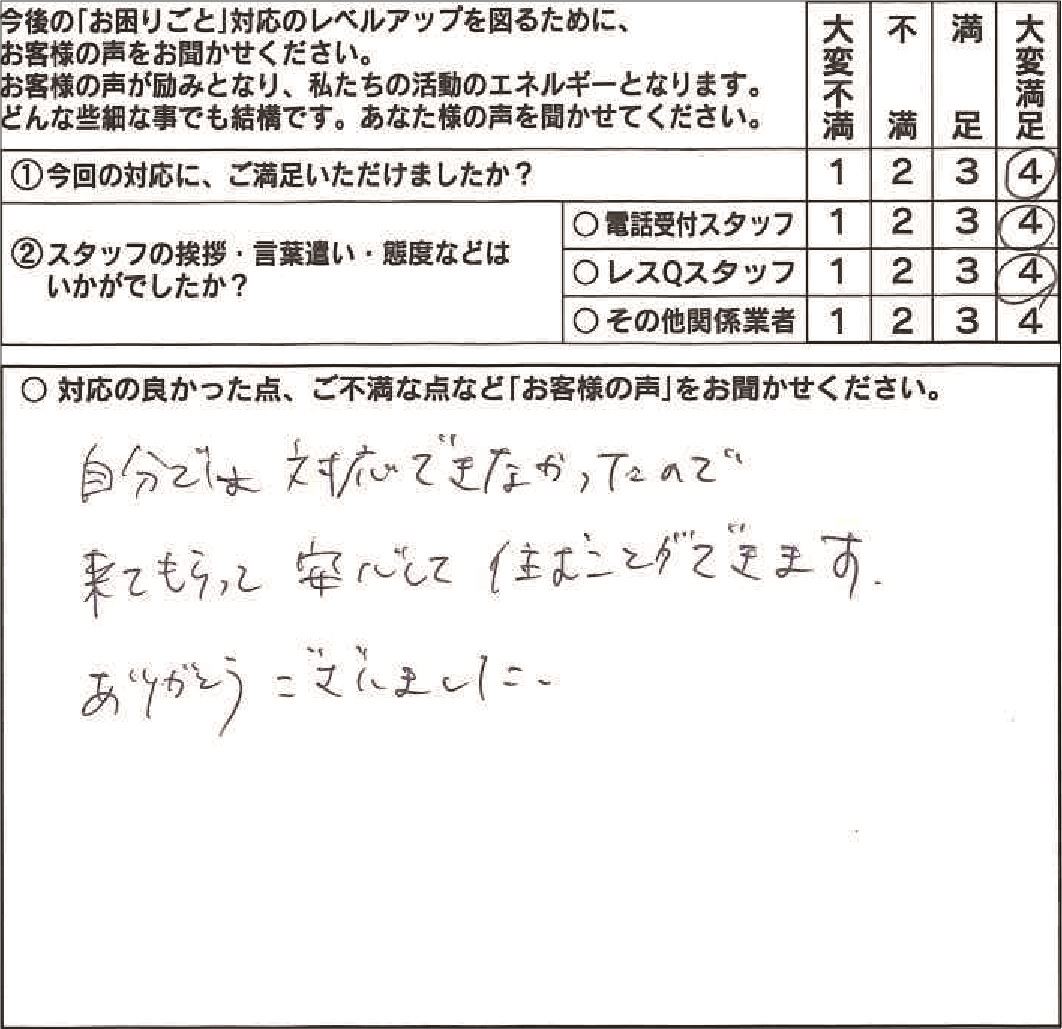 今後の「お困りごと」対応のレベルアップを図るために、
お客様の声をお聞かせください。
お客様の声が励みとなり、私たちの活動のエネルギーとなります。
どんな些細な事でも結構です。あなた様の声を聞かせてください。
大変不満 不満 満足 大変満足
①今回の対応に、ご満足いただけましたか？ 1 2 3 4
②スタッフの挨拶・言葉遣い・態度などは
いかがでしたか？
○電話受付スタッフ 1 2 3 4
○レスQスタッフ 1 2 3 4
○その他関係業者 1 2 3 4
○ 対応の良かった点、ご不満な点など「お客様の声」をお聞かせください。
自分では 対応できなかったので
来てもらって 安心して 住むことができます.
ありがとう ございました.